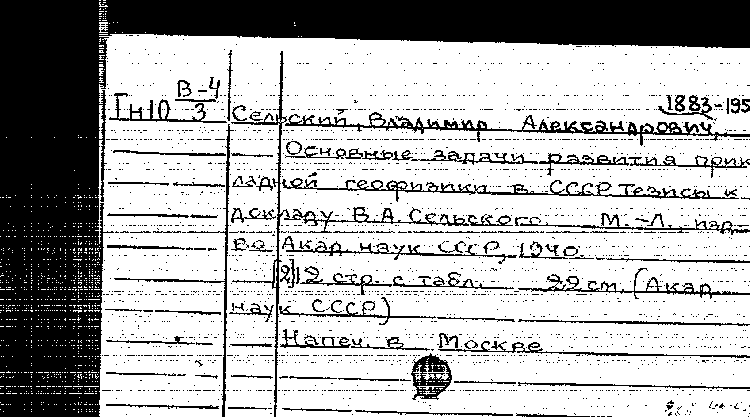 Гн10 В-4/3
1883-195
Сельский, Владимир Александрович,
Основные задачи развития прик
ладной геофизики в СССР. Тезисы к
докладу В.А. Сельского. М.-Л. изд-
во Акад. наук СССР, 1940.
[2]12 стр. с табл. 22 см. (Акад.
наук СССР)
Напеч. в Москве